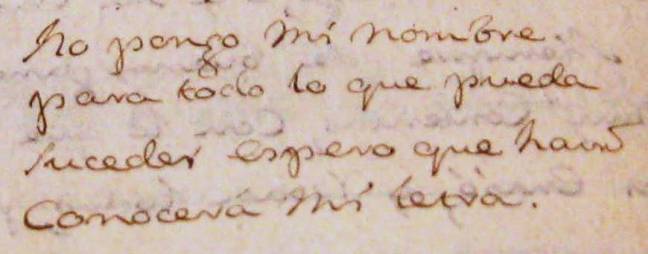 No pongo mi nombre
para todo lo que pueda
suceder espero que
Conocera mi letra.